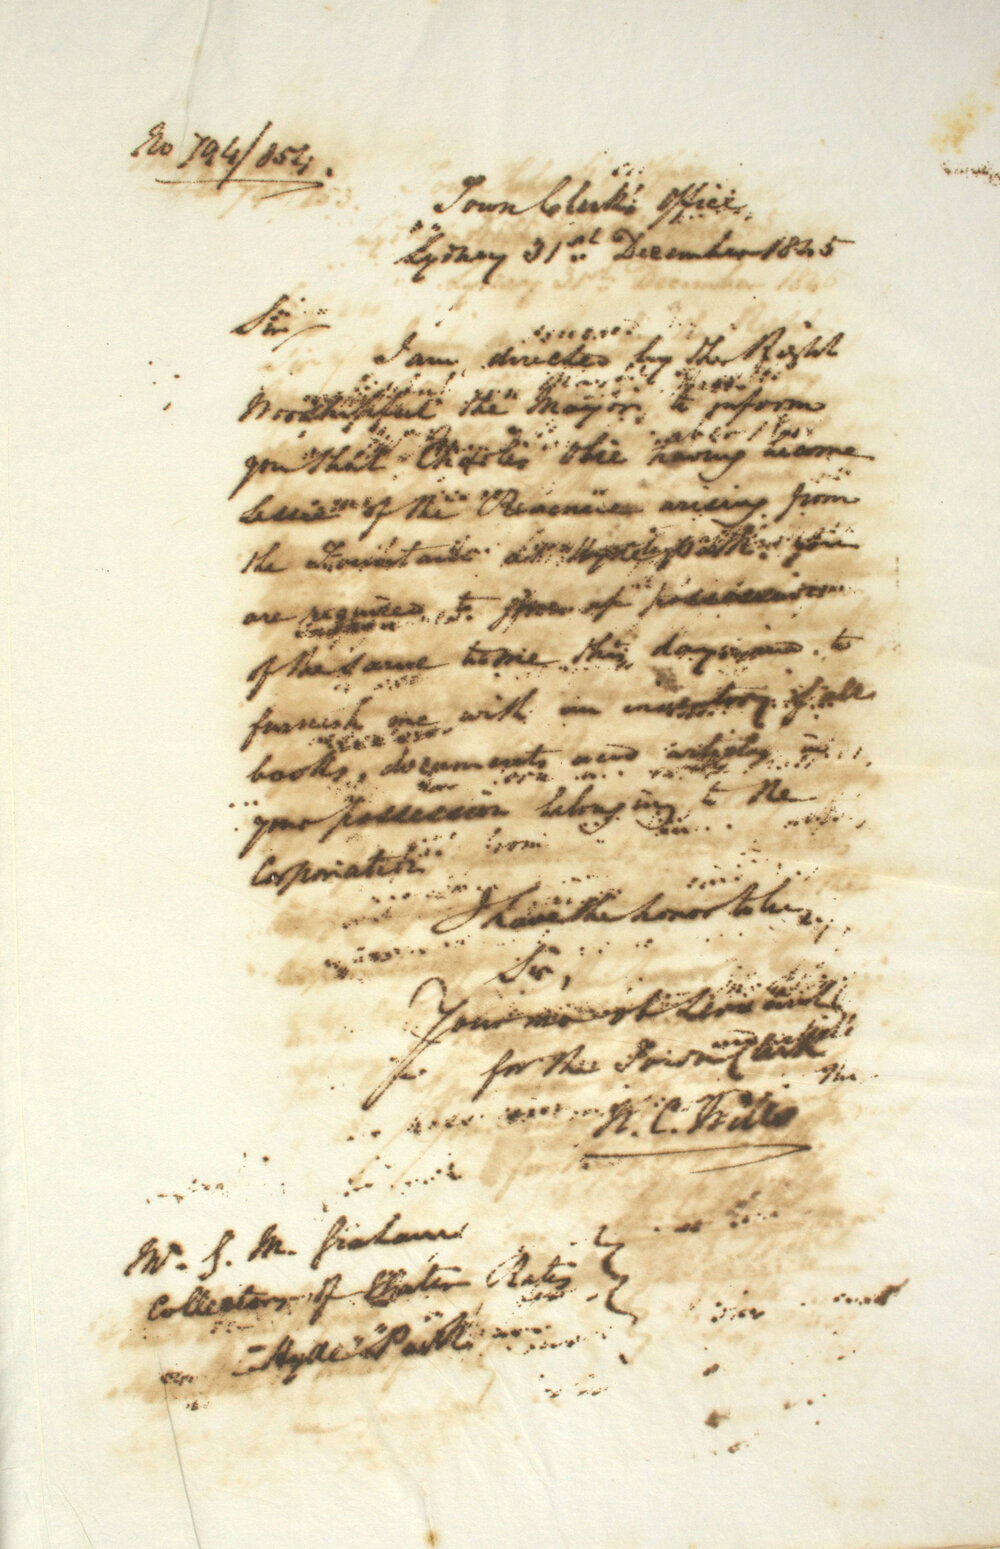 No 794/854.
Town Clerk's Office
Sydney 31st December 1845
Sir
I am directed by the Right
Worshipful the Mayor to inform
you that Charles Obie having become
Lessee of the Revenue arising from
the Fountain at Hyde park you
are required to give up possession
of the same to me this day and to
furnish me with an inventory of all
books, documents and in
your possession belonging to the
Corporation
I have the honor to be,
Sir,
Your most Servant
for the Town Clerk
W. C. Wills
Mr. G. M. Graham
Collector of Water Rates
Hyde Park